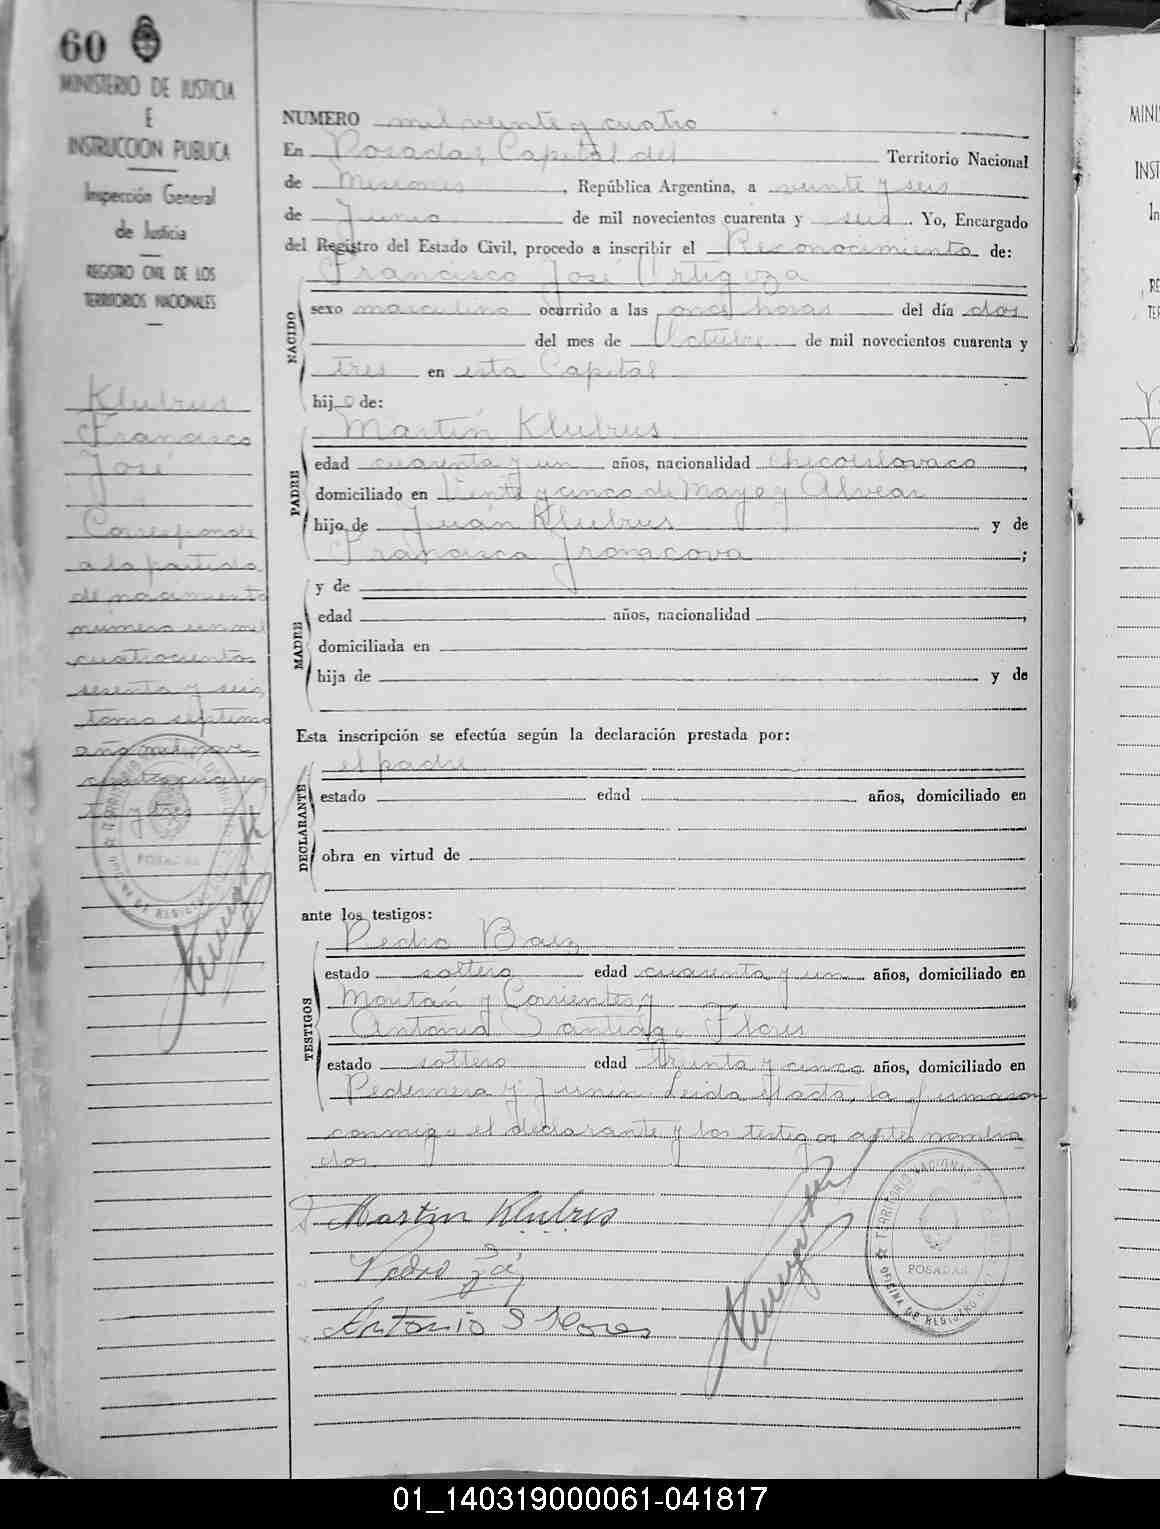 60
MINISTERIO DE JUSTICIA
E
INSTRUCCION PUBLICA
Inspección General
de Justicia
REGISTRO CIVIL DE LOS
TERRITORIOS NACIONALES
Klubrus
Francisco
José
Corresponde
a la partida
de nacimiento
número un mil
cuatrocientos
sesenta y seis
tomo séptimo
año mil nove
cientos cuaren
ta y tres
POSADAS
NUMERO mil veinte y cuatro
En Posadas, Capital del Territorio Nacional
de Misiones, República Argentina, a veinte y seis
de Junio de mil novecientos cuarenta y seis. Yo, Encargado
del Registro del Estado Civil, procedo a inscribir el Reconocimiento de:
Francisco José Ortigoza
NACIDO
sexo masculino ocurrido a las once horas del día dos
del mes de Octubre de mil novecientos cuarenta y
tres en esta Capital
hijo de:
PADRE
Martín Klubrus
edad cuarenta y un años, nacionalidad checoslovaco,
domiciliado en Veinte y cinco de Mayo y Alvear
hijo de Juán Klubrus y de
Francisca ;
MADRE
y de
edad años, nacionalidad ,
domiciliada en
hija de y de
Esta inscripción se efectúa según la declaración prestada por:
DECLARANTE
el padre
estado edad años, domiciliado en
obra en virtud de
ante los testigos:
TESTIGOS
Pedro Baez
estado soltero edad cuarenta y un años, domiciliado en
y Corrientes y
Antonio Santiago Flores
estado soltero edad treinta y cinco años, domiciliado en
Pedernera y Junin. Leida el acta, la firmaron
conmigo el declarante y los testigos antes nombra
dos
Martin Klubrus
Pedro
Antonio S Flores
TERRITORIOS NACIONALES
POSADAS
OFICINA DE REGISTRO
MINI
INST
In
RE
TER
01_140319000061-041817